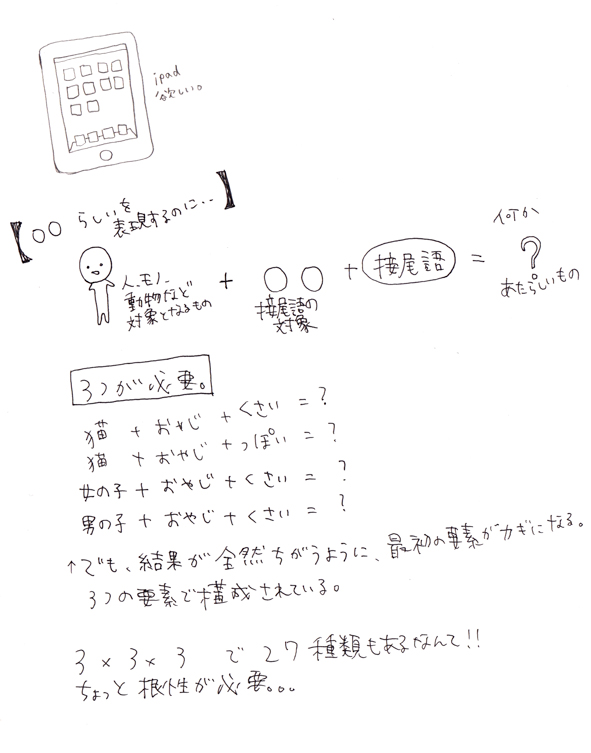 ipad
欲しい。
【○○らしいを
表現するのに‥】
人、モノ、
動物など
対象となるもの
+
○○
接尾語の
対象
+
接尾語
=
何か
?
あたらしいもの
3つが必要。
猫 + おやじ + くさい = ?
猫 + おやじ + っぽい = ?
女の子 + おやじ + くさい = ?
男の子 + おやじ + くさい = ?
↑でも、結果が全然ちがうように、最初の要素がカギになる。
3つの要素で構成されている。
3 × 3 × 3 で 27 種類もあるなんて!!
ちょっと根性が必要...